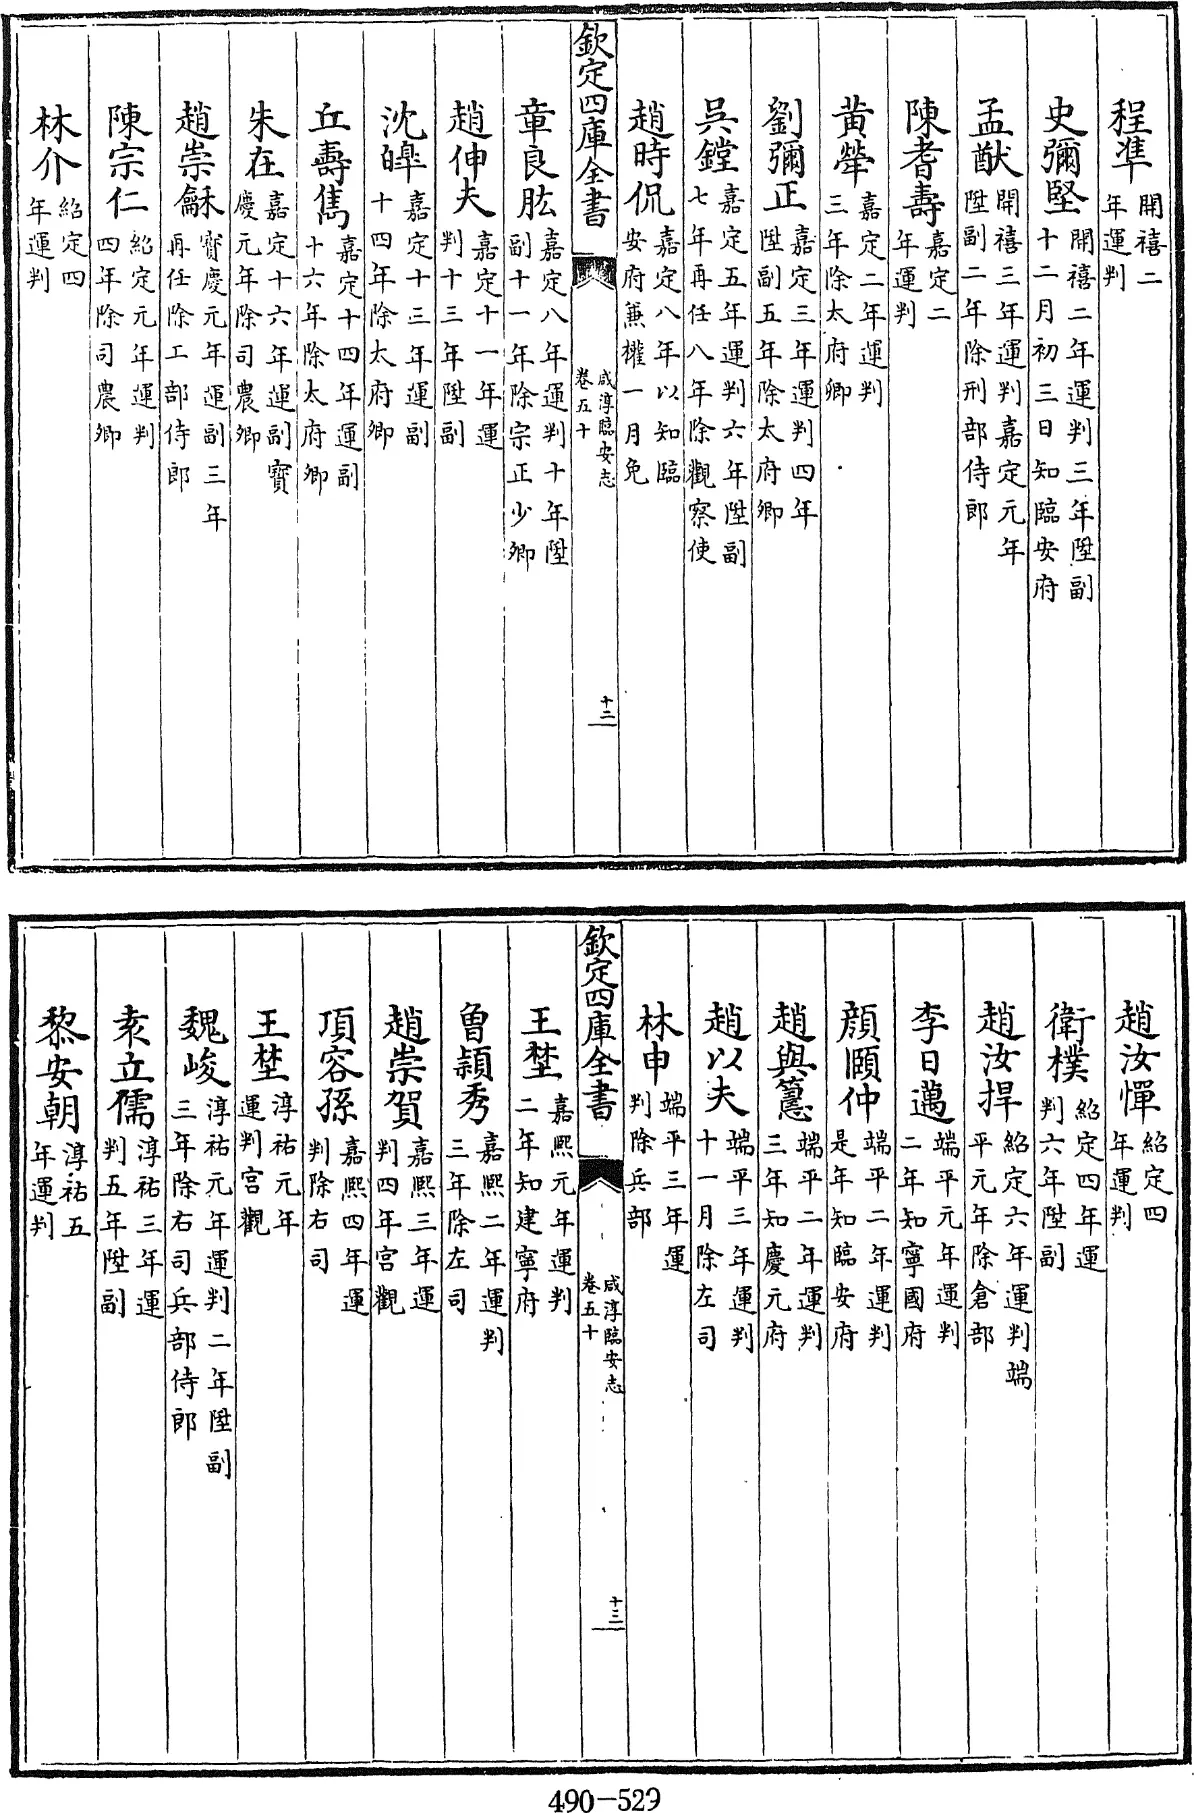 程準開禧二年運判
史彌堅開禧二年運判三年陞副十二月初三日知臨安府
孟猷開禧三年運判嘉定元年陞副二年除刑部侍郎
陳耆壽嘉定二年運判
黄犖嘉定二年運判三年除太府卿
劉彌正嘉定三年運判四年陞副五年除太府卿
吳鏜嘉定五年運判六年陞副七年再任八年除觀察使
趙時侃嘉定八年以知臨安府兼權一月免
欽定四庫全書 咸淳臨安志 卷五十 十二
章良肱嘉定八年運判十年陞副十一年除宗正少卿
趙伸夫嘉定十一年運判十三年陞副
沈皥嘉定十三年運副十四年除太府卿
丘壽雋嘉定十四年運副十六年除太府卿
朱在嘉定十六年運副寳慶元年除司農卿
趙崇龢寳慶元年運副三年再任除工部侍郎
陳宗仁紹定元年運判四年除司農卿
林介紹定四年運判
趙汝憚紹定四年運判
衛樸紹定四年運判六年陞副
趙汝捍紹定六年運判端平元年除倉部
李日邁端平元年運判二年知寧國府
顔頤仲端平二年運判是年知臨安府
趙與𥲅端平二年運判三年知慶元府
趙以夫端平三年運判十一月除左司
林申端平三年運判除兵部
欽定四庫全書 咸淳臨安志 卷五十 十三
王埜嘉熙元年運判二年知建寧府
曾穎秀嘉熙二年運判三年除左司
趙崇賀嘉熙三年運判四年宫觀
項容孫嘉熙四年運判除右司
王埜淳祐元年運判宫觀
魏峻淳祐元年運判二年陞副三年除右司兵部侍郎
袁立儒淳祐三年運判五年陞副
黎安朝淳祐五年運判
490-529